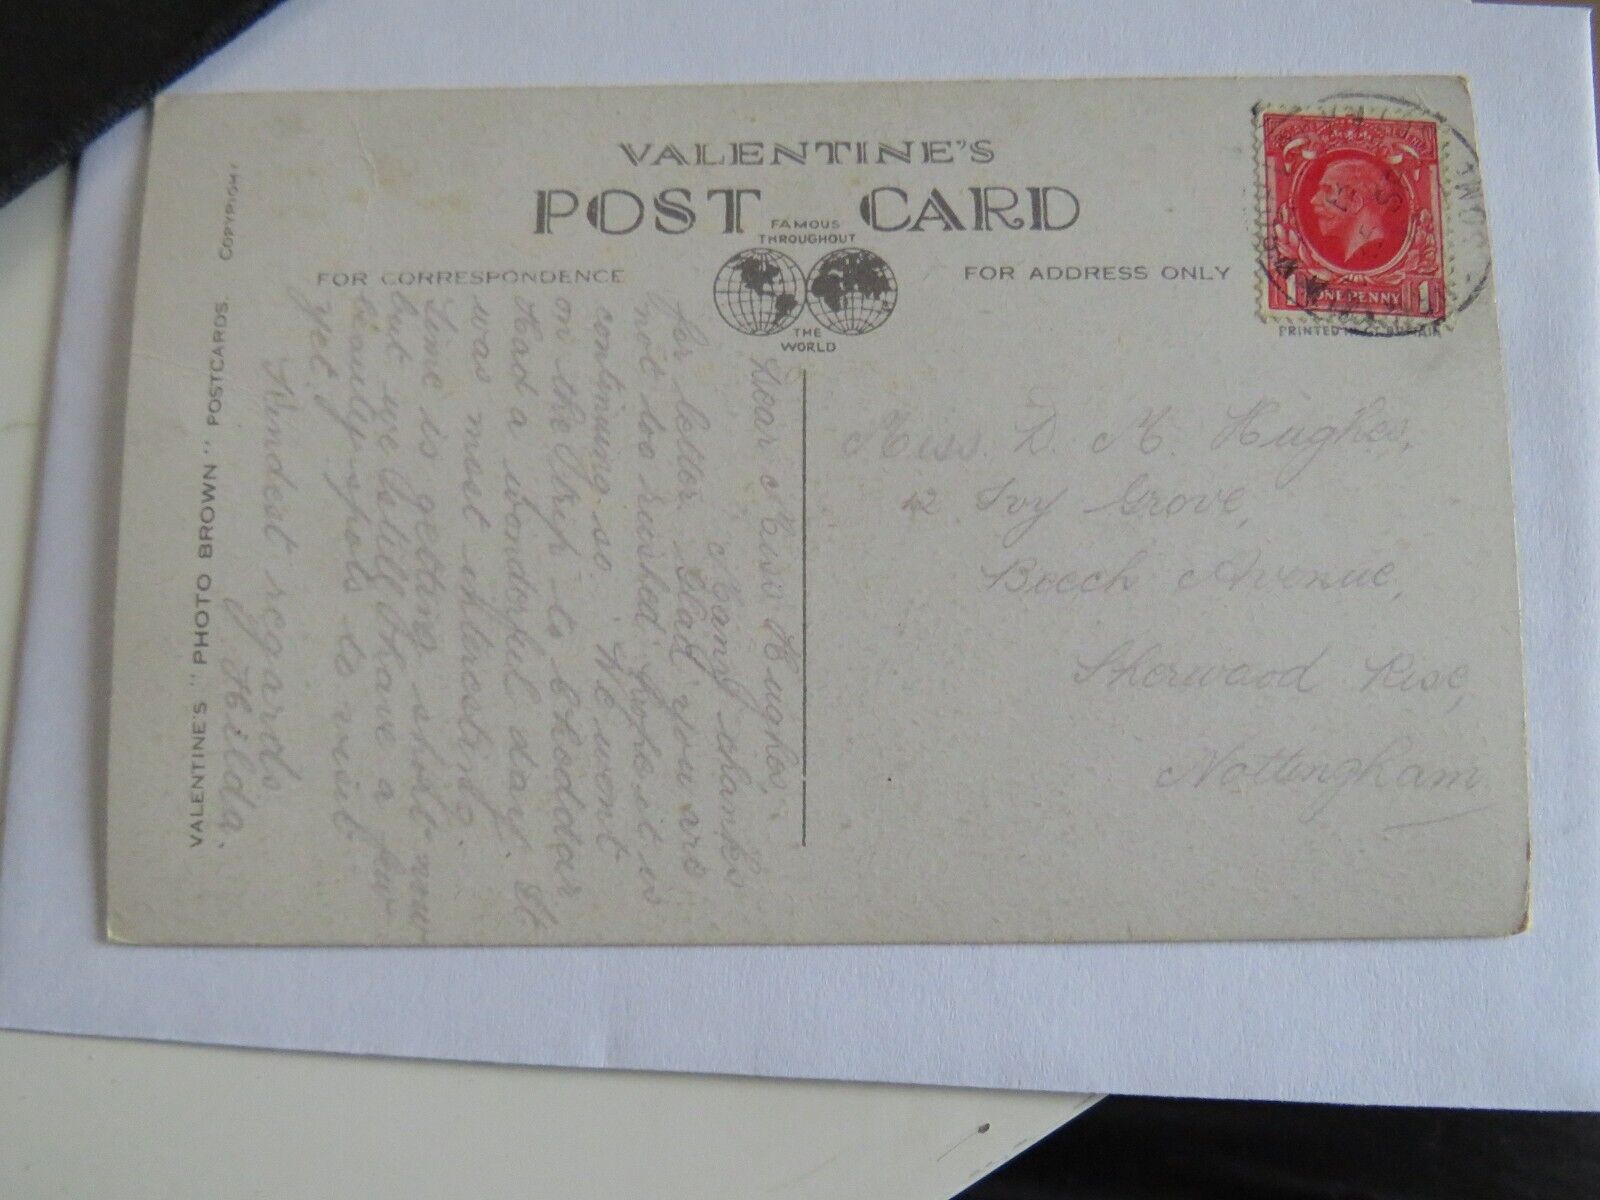 VALENTINE'S
POST CARD
FAMOUS
THROUGHOUT
THE
WORLD
FOR CORRESPONDENCE
FOR ADDRESS ONLY
ONE PENNY
1 1
PRINTED IN GT. BRITAIN
VALENTINE'S "PHOTO BROWN" POSTCARDS. COPYRIGHT
Dear Miss Hughes,
Many thanks
for letter. Glad you are
not too rushed hope it is
continuing so. We went
on the trip to Cheddar
Had a wonderful day. It
was most interesting.
Time is getting short now
but we still have a few
beauty spots to visit
yet.
Kindest regards,
Hilda.
Miss. D. M. Hughes,
42 Ivy Grove,
Beech Avenue,
Sherwood Rise,
Nottingham